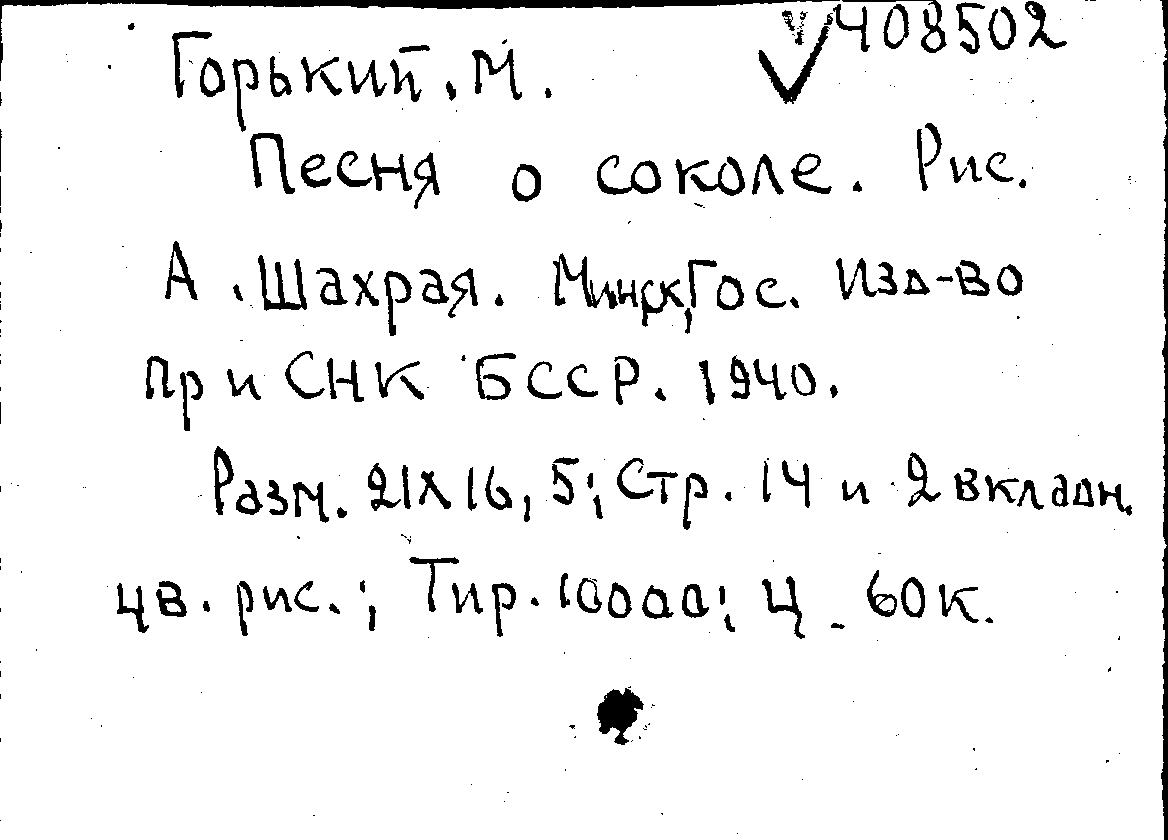 408502
Горький. М.
Песня о соколе. Рис.
А. Шахрая. Минск, Гос. изд-во
при СНК БССР. 1940.
Разм. 21х16,5; Стр. 14 и 2 вкладн.
цв. рис.; Тир. 10000; Ц. 60к.